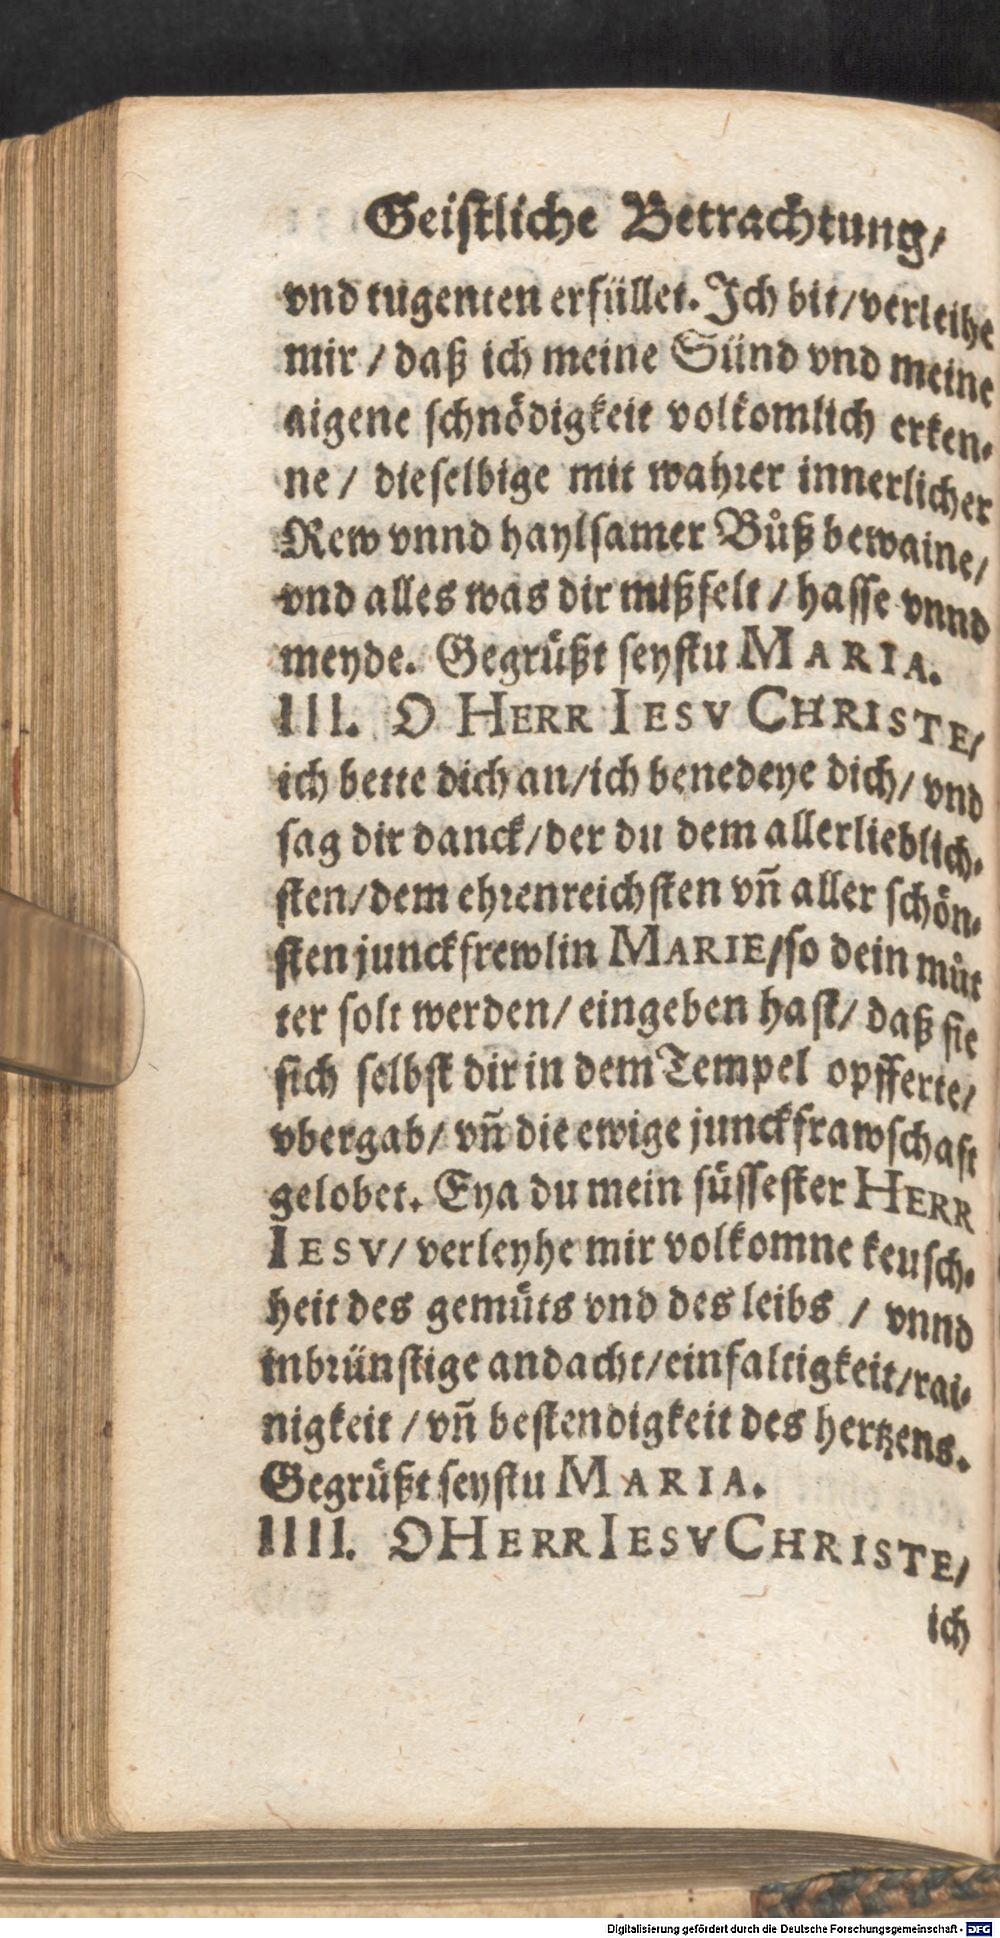 Geistliche Betrachtung/
vnd tugenten erfüllet. Ich bit/verleihe
mir / daß ich meine Sünd vnd meine
aigene schnödigkeit volkomlich erken-
ne / dieselbige mit wahrer innerlicher
Rew vnnd haylsamer Bůß bewaine/
vnd alles was dir mißfelt / hasse vnnd
meyde. Gegrüßt seystu MARIA.
III. O HERR IESV CHRISTE/
ich bette dich an/ich benedeye dich/ vnd
sag dir danck/der du dem allerlieblich-
sten/dem ehrenreichsten vñ aller schön-
sten junckfrewlin MARIE/so dein můt
ter solt werden/ eingeben hast/ daß sie
sich selbst dir in dem Tempel opfferte/
vbergab/ vñ die ewige junckfrawschaft
gelobet. Eya du mein süssester HERR
IESV/ verleyhe mir volkomne keusch-
heit des gemüts vnd des leibs / vnnd
inbrünstige andacht/einfaltigkeit/rai-
nigkeit / vñ bestendigkeit des hertzens.
Gegrüßt seystu MARIA.
IIII. O HERR IESV CHRISTE/
ich
Digitalisierung gefördert durch die Deutsche Forschungsgemeinschaft - DFG